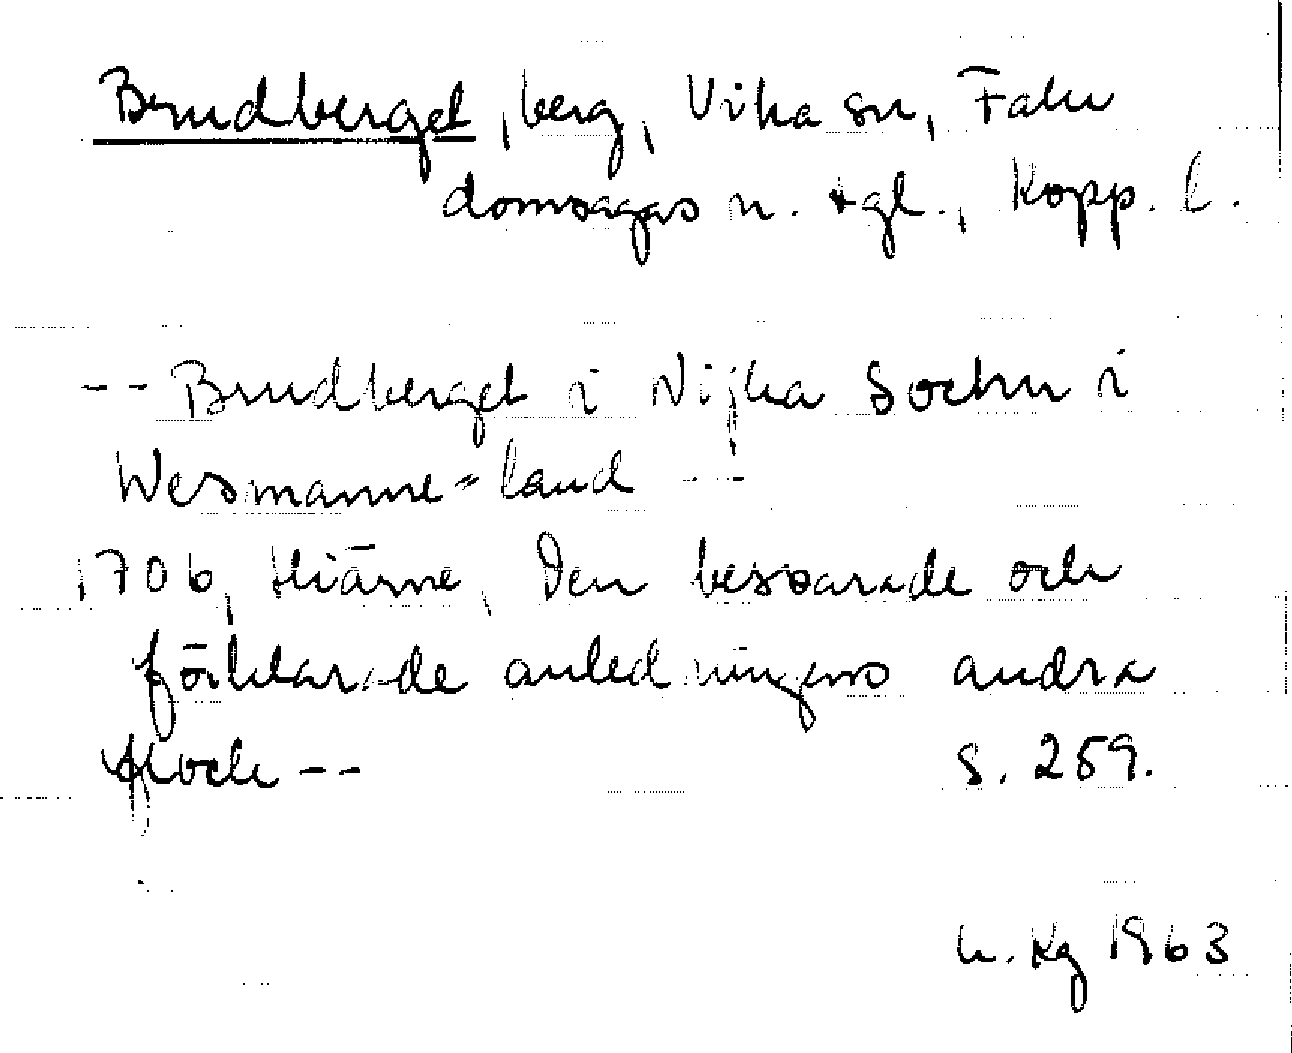 Brudberget, berg, Vika sn, Falu
domsagas n. tgl., Kopp. l.
-- Brudberget i Wijka Sochn i
Wesmanne-land --
1706, Hiärne, Den besvarade och
förklarade anledningens andra
flock -- s. 259.